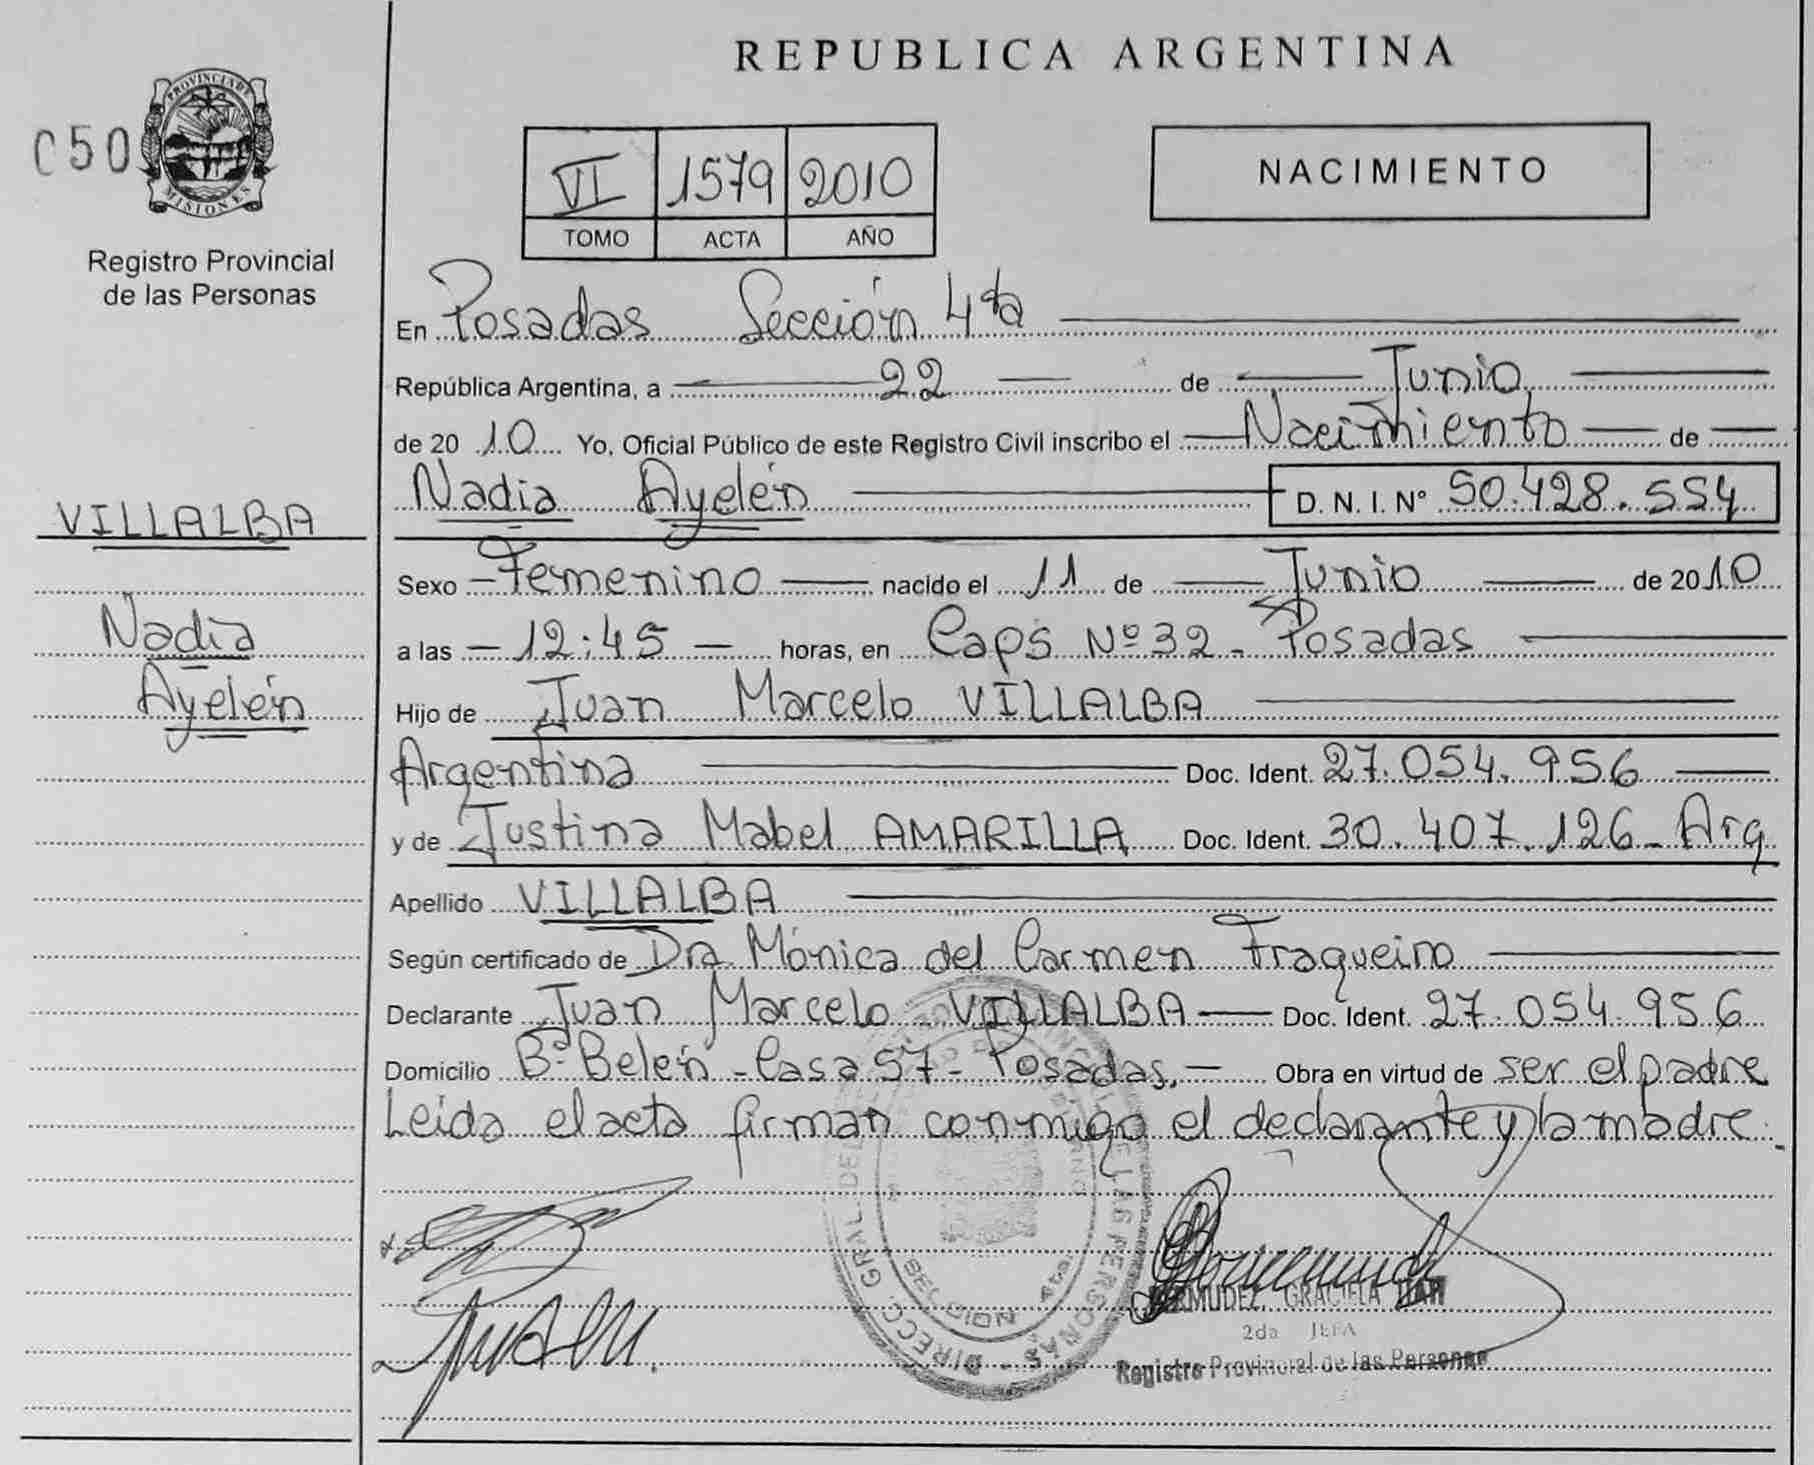 REPUBLICA ARGENTINA
PROVINCIA DE
MISIONES
C50
Registro Provincial
de las Personas
NACIMIENTO
VI 1579 2010
TOMO ACTA AÑO
En Posadas Sección 4ta
República Argentina, a 22 de Junio
de 2010 Yo, Oficial Público de este Registro Civil inscribo el Nacimiento de
Nadia Ayelén D. N. I. Nº 50.428.554
VILLALBA
Nadia
Ayelén
Sexo Femenino nacido el 11 de Junio de 2010
a las 12:45 horas, en Caps Nº 32 - Posadas
Hijo de Juan Marcelo VILLALBA
Argentina Doc. Ident. 27.054.956
y de Justina Mabel AMARILLA Doc. Ident. 30.407.126 - Arg
Apellido VILLALBA
Según certificado de Dra Mónica del Carmen Fraqueiro
Declarante Juan Marcelo VILLALBA Doc. Ident. 27.054.956
Domicilio Bº Belén - Casa 57 - Posadas. Obra en virtud de ser el padre
Leida el acta firman conmigo el declarante y la madre.
DIRECC. GRAL. DEL PERSONAS
SECCION 4ta.
GRACIELA
2da JEFA
Registro Provincial de las Personas